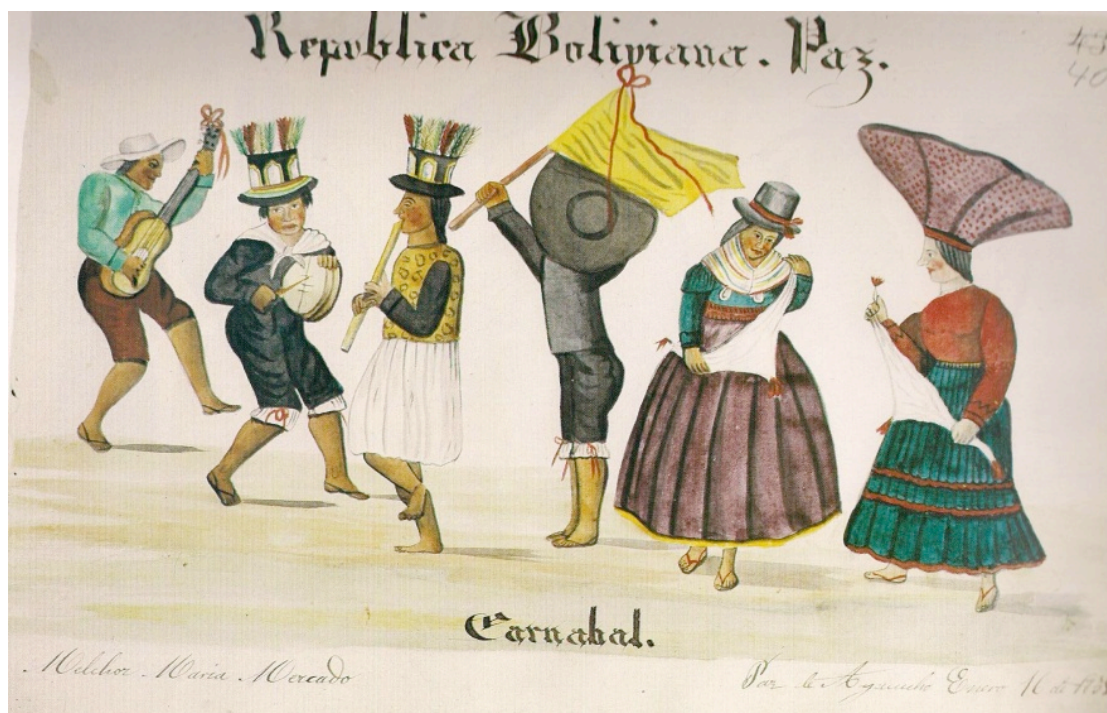 Republica Boliviana. Paz.
40
Carnabal.
Melchor Maria Mercado
Paz de Ayacucho Enero 16 de